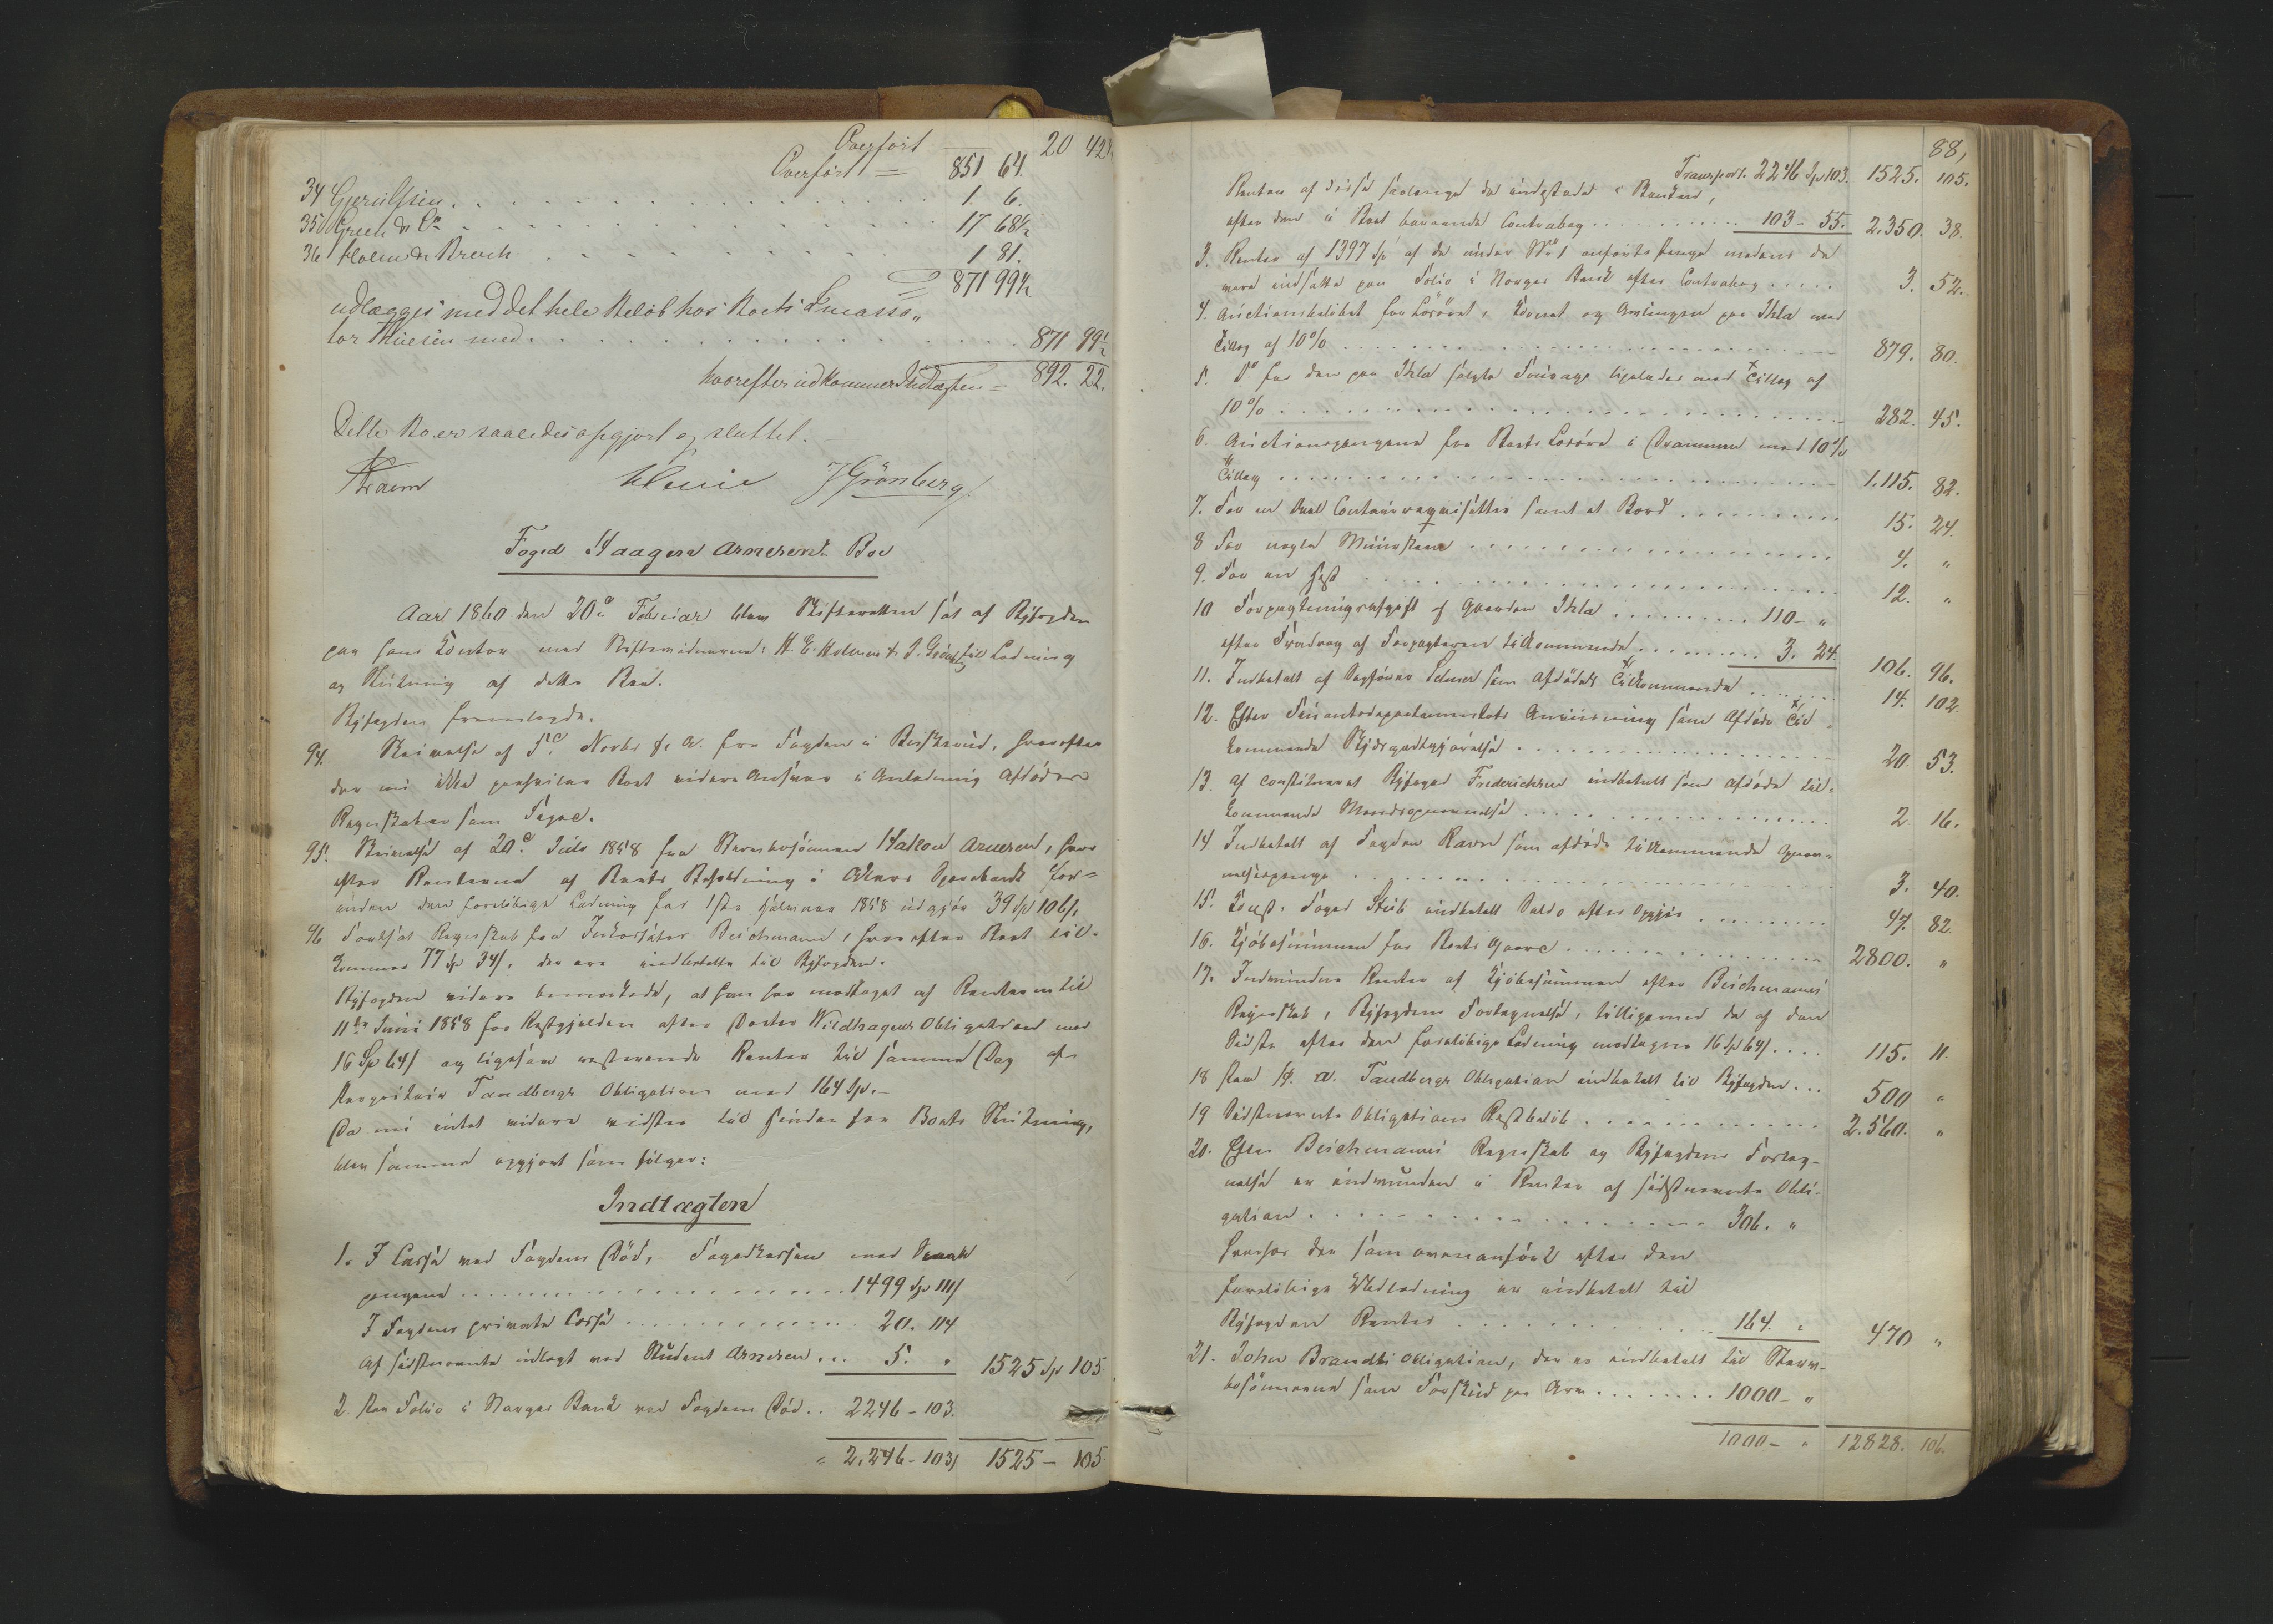 Overført 20 42½
Overført = 851 64.
34 Gjerulfsen . . . 1. 6.
35 Greeh & Co . . . 17 68½
36 Holem & Broch . . . 1 81.
871 99½
udlægges med det hele Beløb hos Boets Incassa„
tor Thiesen med . . . 871 99½
hvorefter udkommer Indtægten = 892. 22.
Dette Bo er saaledes opgjort og sluttet.
Grønberg
Foged Haagen Arnesens Bo
Aar 1860 den 20de Februar blev Skifteretten sat af Byfogden
paa hans Kontor med Skiftevidnerne: H. E. Holm & J. Grønberg til Lodning
og Slutning af dette Bo.
Byfogden fremlagde.
94. Skrivelse af 5te Novbr f. A. fra Fogden i Buskerud, hvorefter
der nu ikke paahviler Boet videre Ansvar i Anledning Afdødes
Regnskaber som Foged.
95. Skrivelse af 20de Juli 1858 fra Sterbbosønnen Hakon Arnesen, hvor
efter Renterne af Boets Beholdning i Akers Sparebank for-
inden den foreløbige Lodning for 1ste Halvaar 1858 udgjør 39 Sp 106 s.
96 Fortsat Regnskab fra Inkassator Beichmann, hvorefter Boet til-
kommer 77 Sp 34 s. der ere indbetalte til Byfogden.
Byfogden videre bemærkede, at han har modtaget af Renterne til
11te Juni 1858 for Restgjelden efter Doctor Wildhagens Obligation med
16 Sp 64 s og ligesaa resterende Renter til samme Dag af
Tandbergs Obligation med 164 Sp.–
Da nu intet videre vidstes til Hinder for Boets Slutning,
blev samme opgjort som følger:
Indtægten
1. I Cassa ved Fogdens Død, Fogedkassen med
pengene . . . 1499 Sp 111 s
I Fogdens private Cassa . . . 20. 114
Af sidstnævnte udlagt ved Student Arnesen . . . 5. „ 1525 Sp 105
2. Paa Folio i Norges Bank ved Fogdens Død . . 2246 – 103.
„ 2,246 – 103 s 1525 – 105
88,
Transport. 2246 Sp 103. 1525. 105.
Renten af disse saalænge de indestode i Banken,
efter den i Boet beroende Contrabog . . . 103 – 55. 2.350. 38.
3. Renter af 1397 Sp af de under No 1 anførte Penge medens de
vare indsatte paa Folio i Norges Bank efter Contrabog . . . 3. 52.
4. Auctionsbeløbet for Løsøret, Kornet og Avlingen paa Ihla med
Tillæg af 10% . . . 879. 80.
5. Do for den paa Ihla solgte Fourage ligeledes med Tillæg af
10% . . . 282. 45.
6. Auctionspengene for Boets Løsøre i Drammen med 10%
Tillæg . . . 1.115. 82.
7. For en Deel Contoirrequisitter samt et Bord . . . 15. 24.
8 For nogle Muursteen . . . 4. „
9. For en Hest . . . 12. „
10 Forpagtningsafgift af Gaarden Ihla . . . 110 – „
efter Fradrag af Forpagteren tilkommende . . . 3. 24. 106. 96.
11. Indbetalt af Sagfører Selmer som Afdøde Tilkommende . . . 14. 102.
12. Efter Finantsdepartementets Anviisning som Afdøde Til-
kommende Skydsgodtgjørelse . . . 20. 53.
13. Af constitueret Byfoged Frederichsen indbetalt som Afdøde til-
kommende . . . 2. 16.
14 Indbetalt af Fogden Ravn som afdøde tilkommende
. . . 3. 40.
15. Const. Foged Stub indbetalt Saldo efter Opgjør . . . 47. 82.
16. Kjøbesummen for Boets Gaard . . . 2800. „
17. Indvundne Renter af Kjøbesummen efter Beichmanns
Regnskab, Byfogdens Fortegnelse, tilligemed de af den
Sidste efter den foreløbige Lodning modtagne 16 Sp 64 s . . . 115. 11.
18 Paa Tandbergs Obligation indbetalt til Byfogden . . . 500 „
19 Sidstnævnte Obligations Restbeløb . . . 2.560. „
20. Efter Beichmanns Regnskab og Byfogdens Forteg-
nelse er indvunden i Renter af sidstnævnte Obli-
gation . . . 306. „
hvorhos der som ovenanført efter den
foreløbige Udlodning er indbetalt til
Byfogden Renter . . . 164. „ 470 „
21. Johan Brandts Obligation, der er indbetalt til Sterv-
bosønnerne som Forskud paa Arv . . . 1000 – „
1000 – „ 12828. 106.